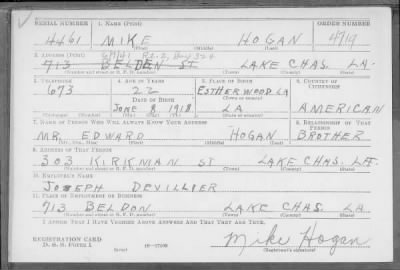 SERIAL NUMBER 1. NAME (Print) ORDER NUMBER
4461 MIKE HOGAN 4719
(First) (Middle) (Last)
2. ADDRESS (Print)
713 BELDEN ST LAKE CHAS. LA.
(Number and street or R. F. D. number) (Town) (County) (State)
3. TELEPHONE 4. AGE IN YEARS 5. PLACE OF BIRTH 6. COUNTRY OF CITIZENSHIP
673 22 ESTHERWOOD LA
DATE OF BIRTH (Town or county)
JUNE 8 1918 LA AMERICAN
(Exchange) (No.) (Mo.) (Day) (Yr.) (State or country)
7. NAME OF PERSON WHO WILL ALWAYS KNOW YOUR ADDRESS 8. RELATIONSHIP OF THAT PERSON
MR. EDWARD HOGAN BROTHER
(Mr., Mrs., Miss) (First) (Middle) (Last)
9. ADDRESS OF THAT PERSON
303 KIRKMAN ST LAKE CHAS. LA.
(Number and street or R. F. D. number) (Town) (County) (State)
10. EMPLOYER'S NAME
JOSEPH DEVILLIER
11. PLACE OF EMPLOYMENT OR BUSINESS
713 BELDON LAKE CHAS. LA
(Number and street or R. F. D. number) (Town) (County) (State)
I AFFIRM THAT I HAVE VERIFIED ABOVE ANSWERS AND THAT THEY ARE TRUE.
REGISTRATION CARD
D. S. S. FORM 1 (over) 16-17105 Mike Hogan
(Registrant's signature)